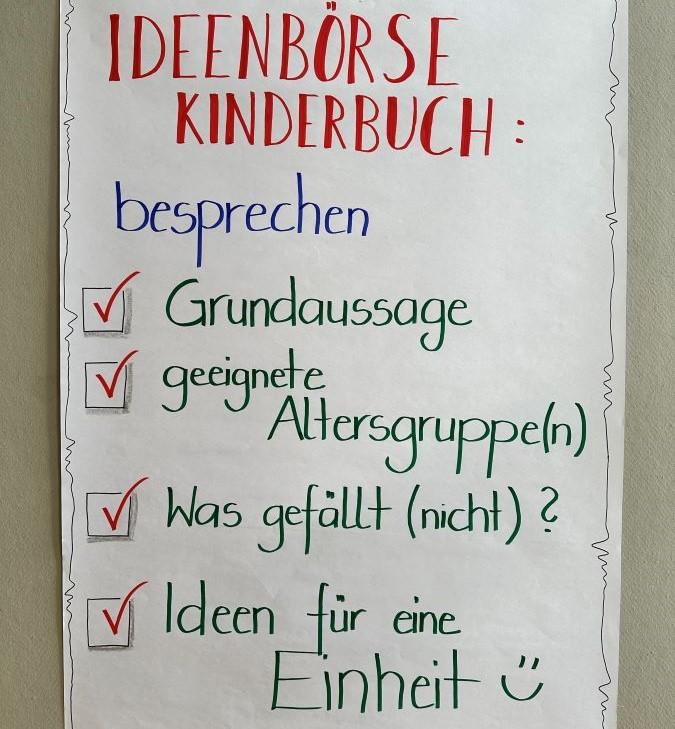 IDEENBÖRSE
KINDERBUCH:
besprechen
Grundaussage
geeignete
Altersgruppe(n)
Was gefällt (nicht)?
Ideen für eine
Einheit